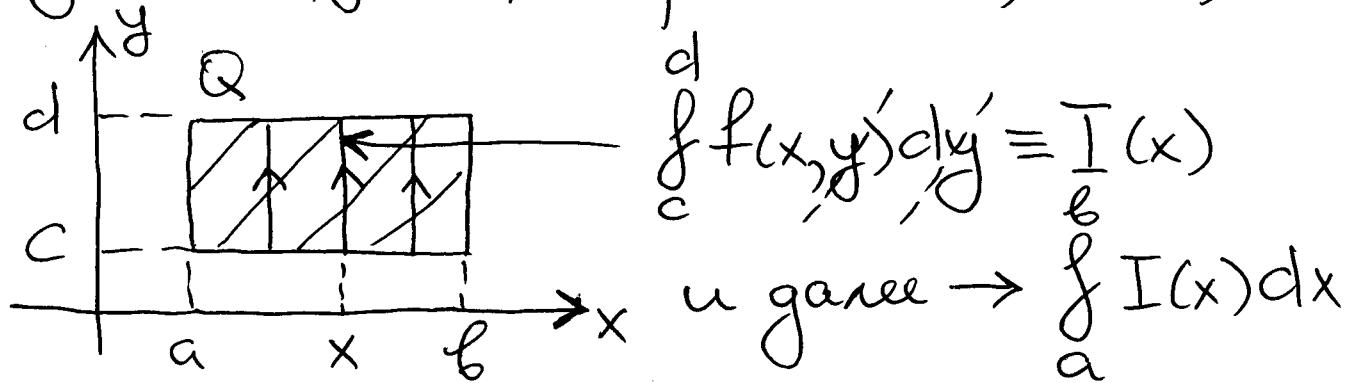 y
Q
d
c
a x b x
∫_c^d f(x,y)dy ≡ I(x)
и далее → ∫_a^b I(x)dx